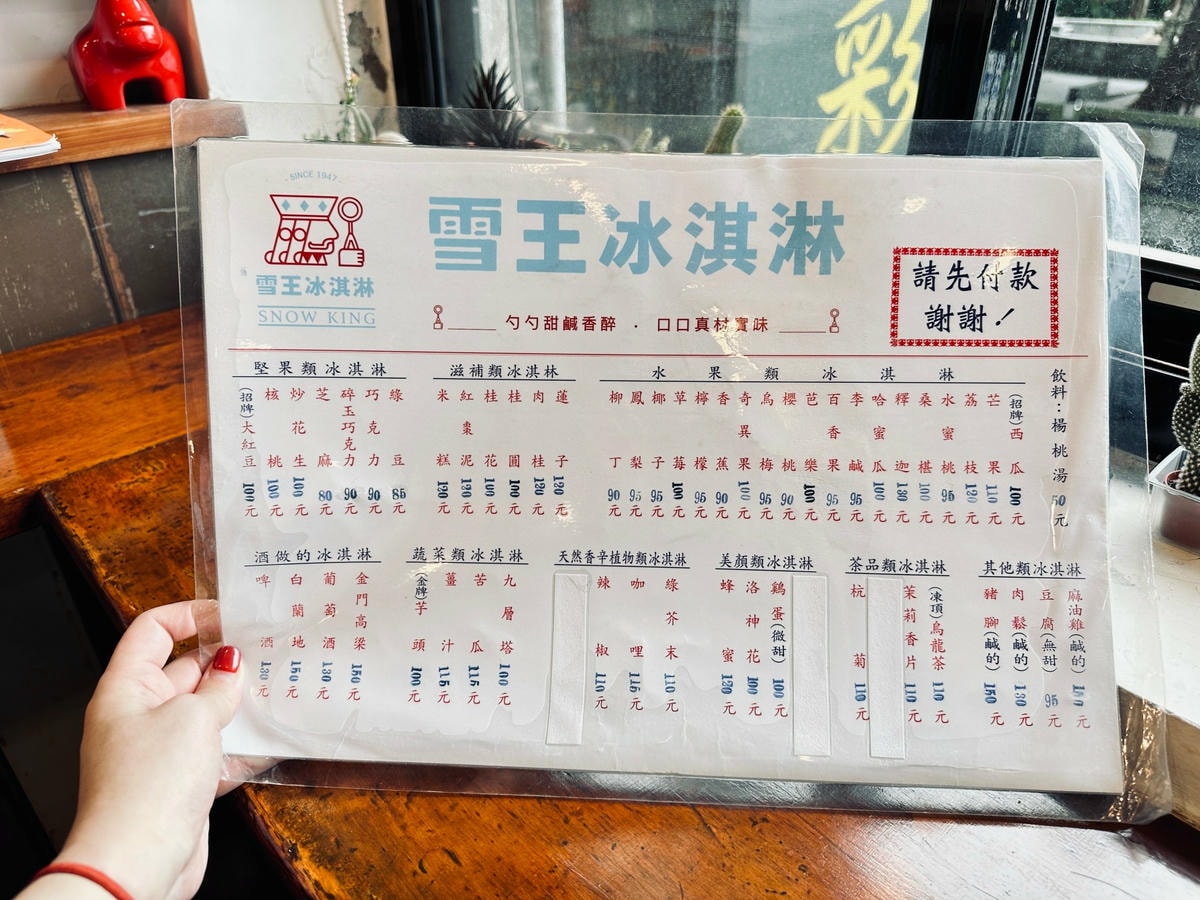 SINCE 1947
雪王冰淇淋
SNOW KING
雪王冰淇淋
勺勺甜鹹香醉 · 口口真材實味
請先付款
謝謝！
飲料：楊桃湯 50元
水果類冰淇淋
(招牌)西瓜 100元
芒果 110元
荔枝 120元
水蜜桃 95元
桑椹 100元
釋迦 130元
哈蜜瓜 100元
李鹹 95元
百香果 95元
芭樂 100元
櫻桃 90元
烏梅 95元
奇異果 100元
香蕉 90元
檸檬 95元
草莓 100元
椰子 95元
鳳梨 95元
柳丁 90元
滋補類冰淇林
蓮子 120元
肉桂 120元
桂圓 100元
桂花 100元
紅棗泥 120元
米糕 120元
堅果類冰淇淋
綠豆 85元
巧克力 90元
碎玉巧克力 90元
芝麻 80元
炒花生 100元
核桃 100元
(招牌)大紅豆 100元
其他類冰淇淋
麻油雞(鹹的) 150元
豆腐(無甜) 95元
肉鬆(鹹的) 130元
豬腳(鹹的) 150元
茶品類冰淇淋
(凍頂)烏龍茶 110元
茉莉香片 110元
杭菊 110元
美顏類冰淇淋
雞蛋(微甜) 100元
洛神花 100元
蜂蜜 120元
天然香辛植物類冰淇淋
綠芥末 110元
咖哩 115元
辣椒 110元
蔬菜類冰淇淋
九層塔 100元
苦瓜 115元
薑汁 115元
(金牌)芋頭 100元
酒做的冰淇淋
金門高梁 150元
葡萄酒 130元
白蘭地 150元
啤酒 130元
彩